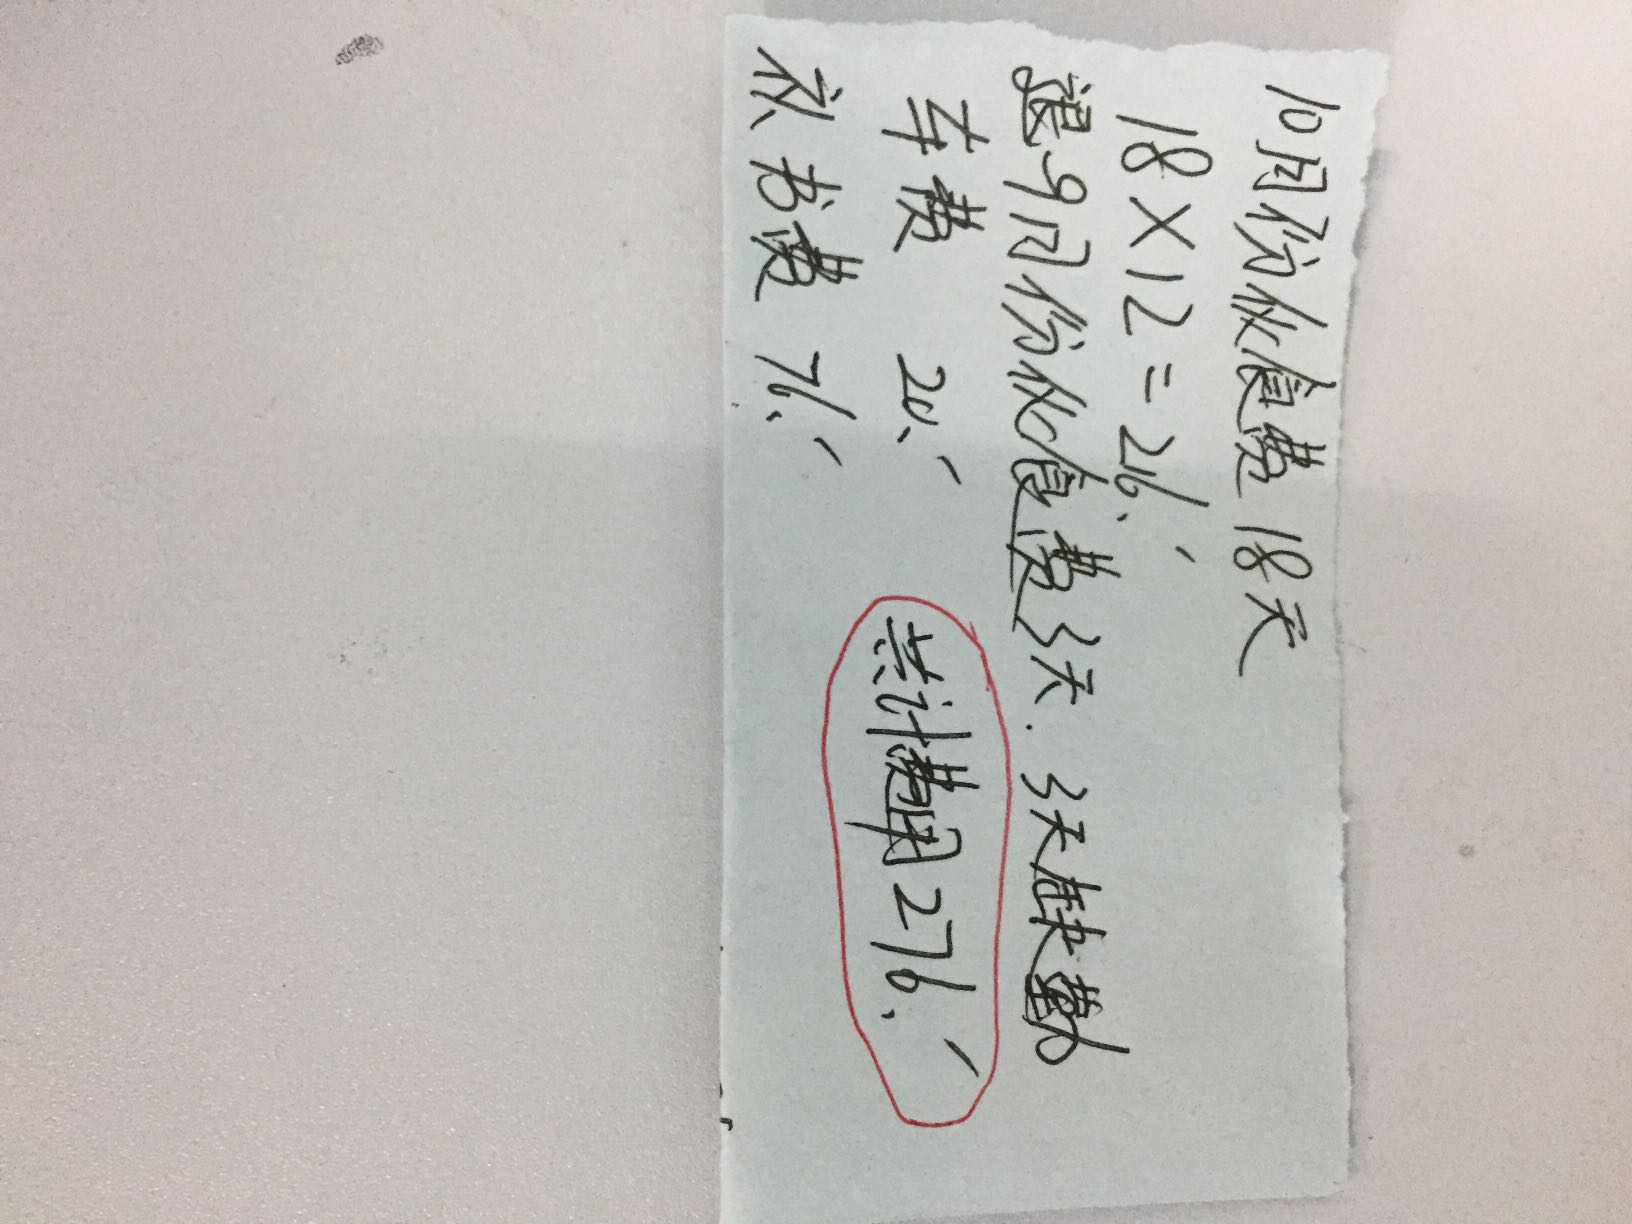 10月份伙食费 18天
18×12=216.-
退9月份伙食费3天. 3天缺勤
车费 20.-
补书费 76.-
共计费用276.-